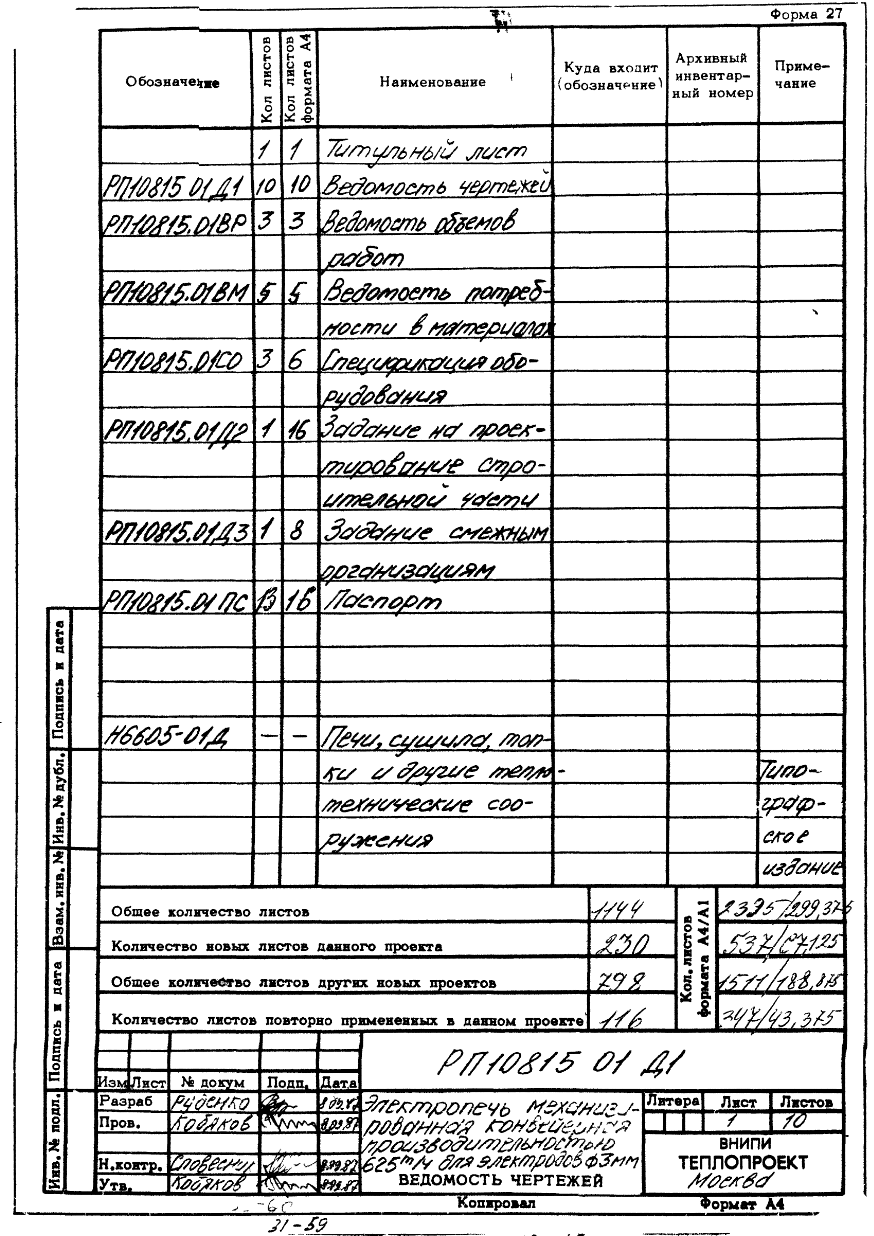 Форма 27
Обозначение | Кол листов | Кол листов формата А4 | Наименование | Куда входит (обозначение) | Архивный инвентарный номер | Примечание
1 1 Титульный лист
РП10815 01 Д1 10 10 Ведомость чертежей
РП10815.01ВР 3 3 Ведомость объемов
работ
РП10815.01ВМ 5 5 Ведомость потреб-
ности в материалах
РП10815.01СО 3 6 Спецификация обо-
рудования
РП10815.01Д2 1 16 Задание на проек-
тирование стро-
ительной части
РП10815.01Д3 1 8 Задание смежным
организациям
РП10815.01 ПС 13 16 Паспорт
Н6605-01Д — — Печи, сушила, топ-
ки и другие тепло- Типо-
технические соо- граф-
ружения ское
издание
Общее количество листов 1144
Количество новых листов данного проекта 230
Общее количество листов других новых проектов 798
Количество листов повторно примененных в данном проекте 116
Кол. листов формата А4/А1
2395/299,375
537/67,125
1511/188,875
347/43,375
Подпись и дата
Инв. № дубл.
Взам. инв. №
Подпись и дата
Инв. № подл.
РП10815 01 Д1
Изм Лист № докум Подп. Дата
Разраб Руденко
Пров. Кобяков
Н.контр.
Утв. Кобяков
Электропечь механизи-
рованная конвейерная
производительностью
625 т/ч для электродов ф3мм
ВЕДОМОСТЬ ЧЕРТЕЖЕЙ
Литера Лист Листов
1 10
ВНИПИ
ТЕПЛОПРОЕКТ
Москва
Копировал Формат А4
31-59